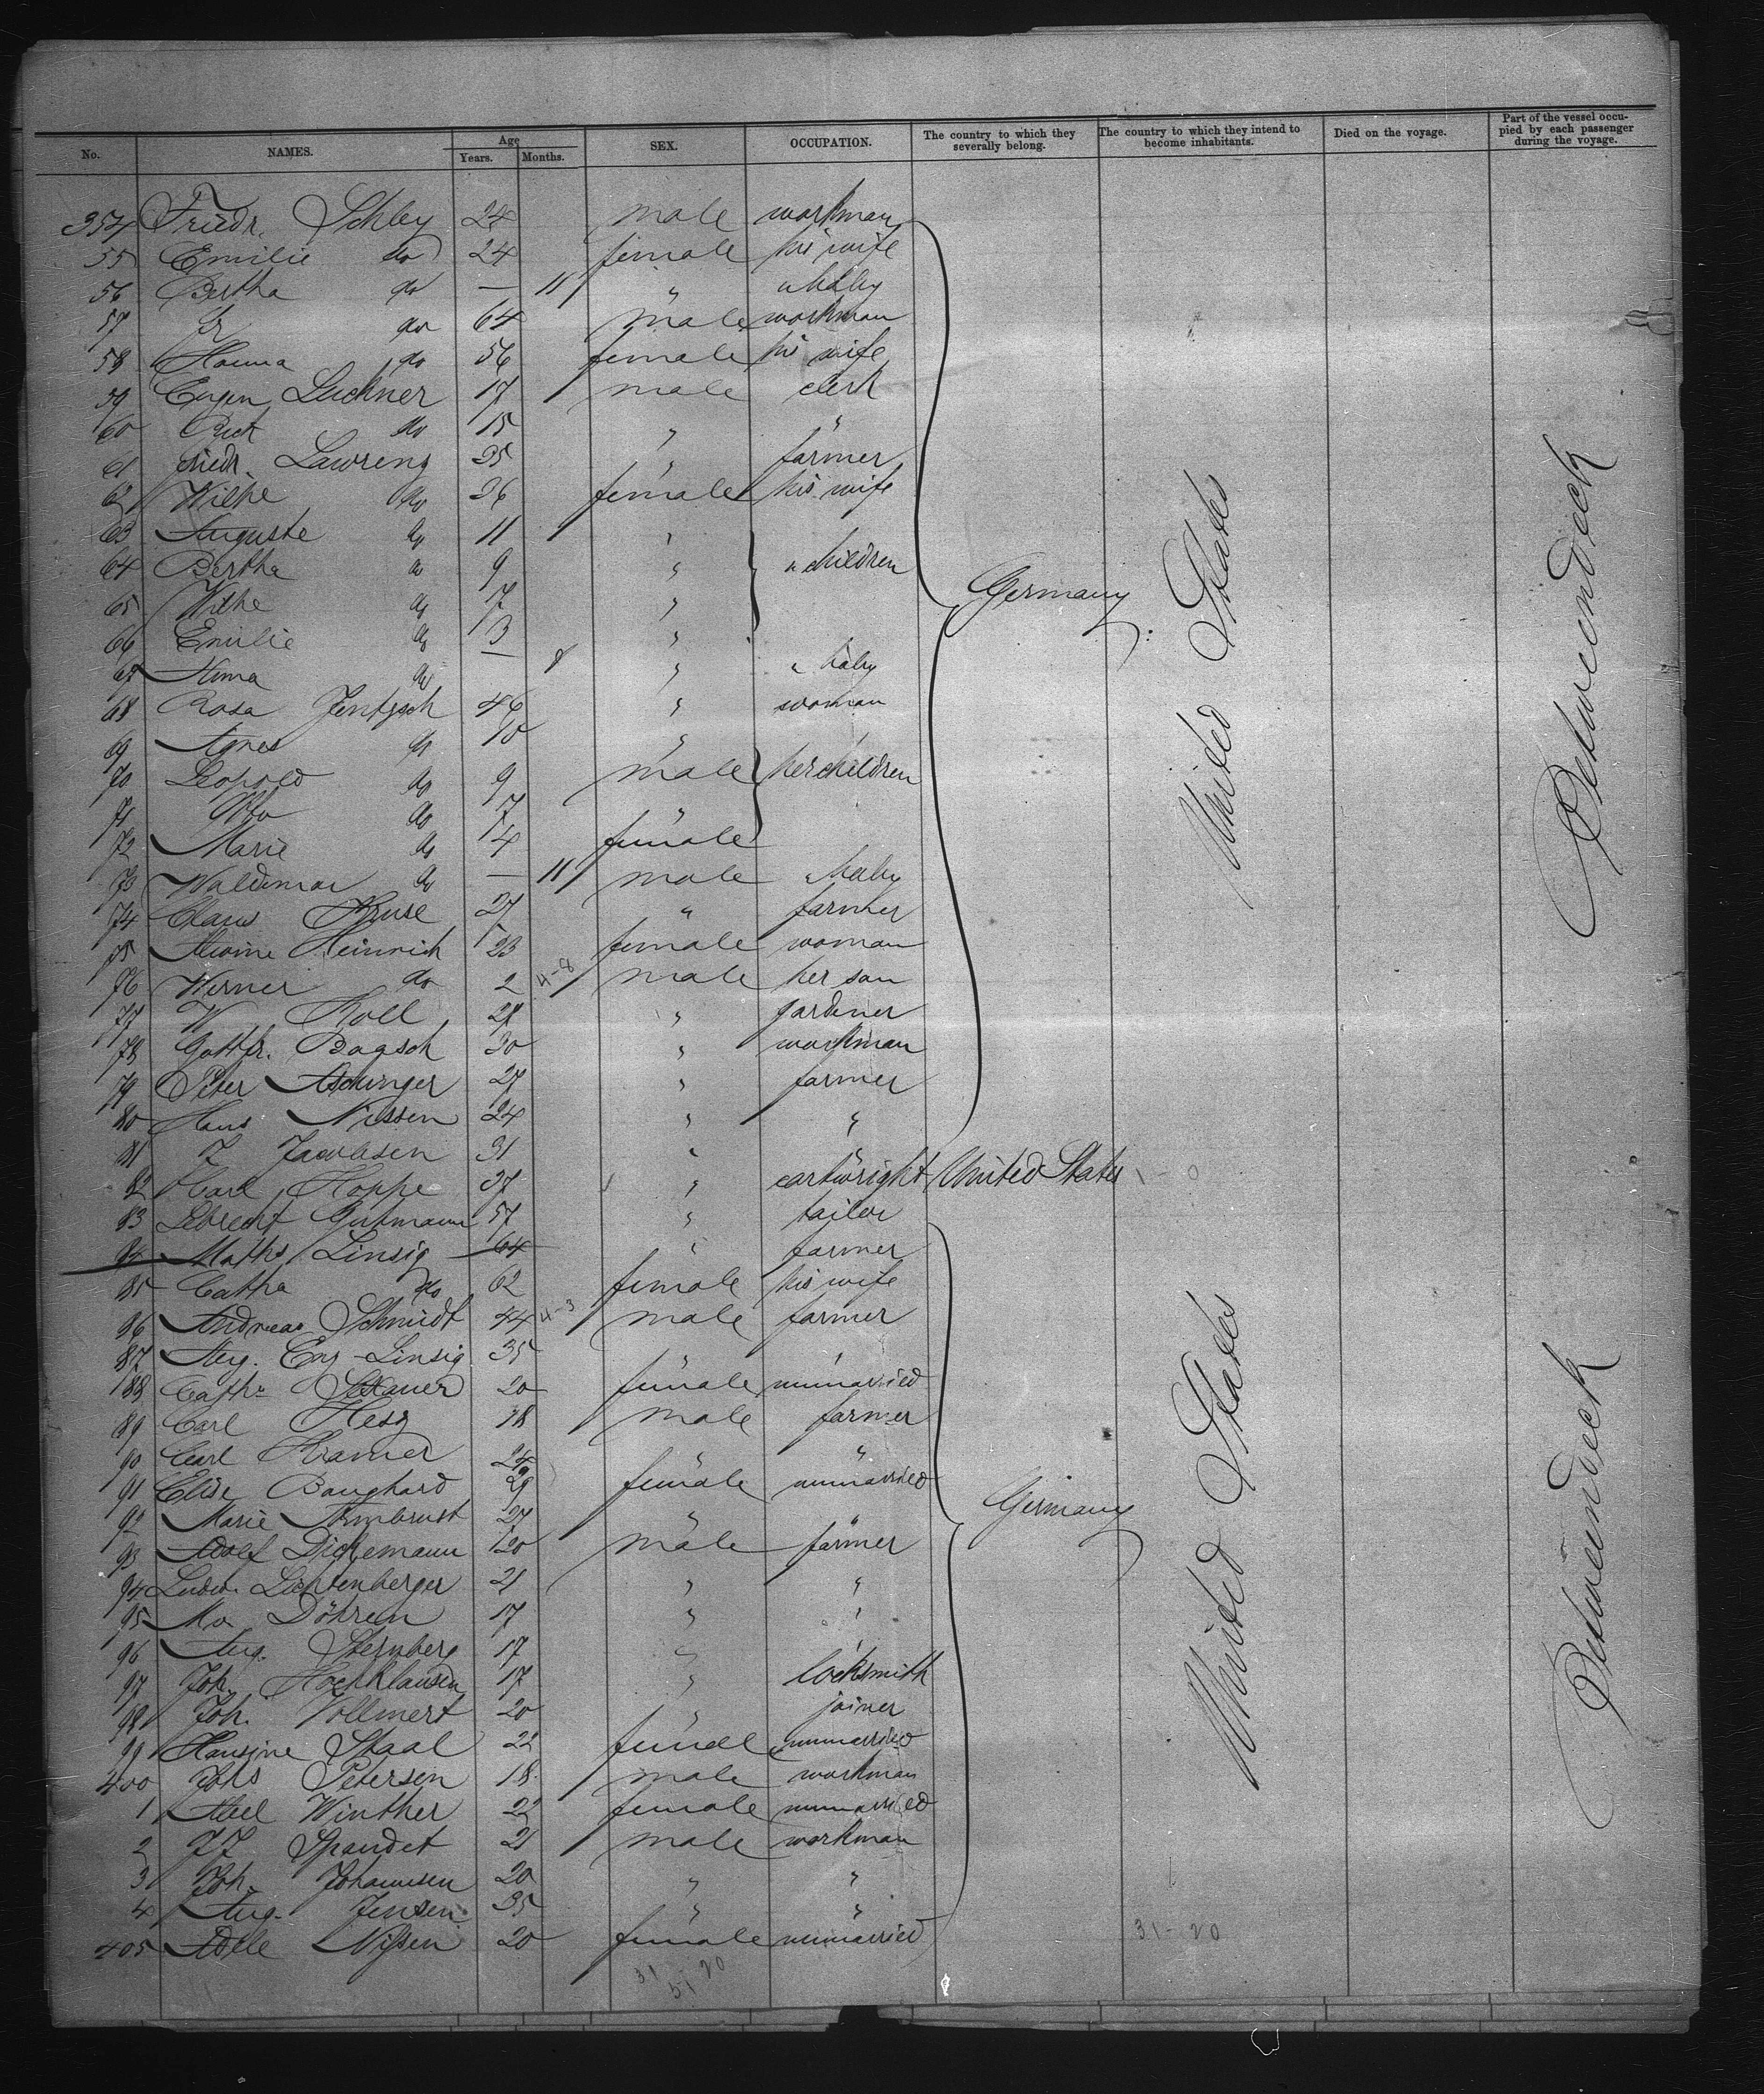 No. NAMES. Age Years. Months. SEX. OCCUPATION. The country to which they severally belong. The country to which they intend to become inhabitants. Died on the voyage. Part of the vessel occupied by each passenger during the voyage.
354 Friedr. Schley 24 male workman
55 Emilie do 24 female his wife
56 Bertha do — 11 " " baby
57 do 64 male workman
58 do 56 female his wife
59 Eugen Luckner 17 male clerk
60 do 15 " "
61 Friedr. Lawrenz 35 " farmer
62 Wilhe do 36 female his wife
63 Auguste do 11 "
64 Bertha do 9 " " children
65 Wilhe do 7 "
66 Emilie do 3 "
67 do — 8 " " baby
68 Rosa Jentzsch 46 " woman
69 Agnes do 10 "
70 Leopold do 9 male her children
71 Otto do 7 "
72 Marie do 4 female
73 Waldemar do — 11 male " baby
74 Claus Kruse 27 " farmer
75 Heinrich 23 female woman
76 Werner do 2 male her son
77 W Koll 28 " gardener
78 Gottfr. Bagsch 30 " workman
79 Peter Aschinger 27 " farmer
80 Hans Nissen 24 " "
81 J Jacobsen 31 " "
82 Carl Hoppe 37 " cartwright United States
83 Lebrecht Gutmann 57 " tailor
84 Maths Linsig 64 " farmer
85 Catha do 62 female his wife
86 Andreas Schmidt 44 male farmer
87 Aug. Eng-Linsig 35 " "
88 Cathr. 20 female unmarried
89 Carl 38 male farmer
90 Carl Kramer 24 " "
91 Elise Banghard 29 female unmarried
92 Marie Armbrust 27 " "
93 Adolf Dickemann 20 male farmer
94 Ludw. Lichtenberger 21 " "
95 Döhren 17 " "
96 Aug. Sternberg 17 " "
97 Joh. Hochklausen 17 " locksmith
98 Joh. Vollmert 20 " joiner
99 Hansine Staal 22 female unmarried
400 Johs Petersen 18 male workman
1 Abel Winther 22 female unmarried
2 Spandet 21 male workman
3 Joh. Johannsen 20 " "
4 Aug. Jensen 35 " "
405 Adele Nissen 20 female unmarried
Germany
United States
Betweendeck
Germany
United States
Betweendeck
31-20